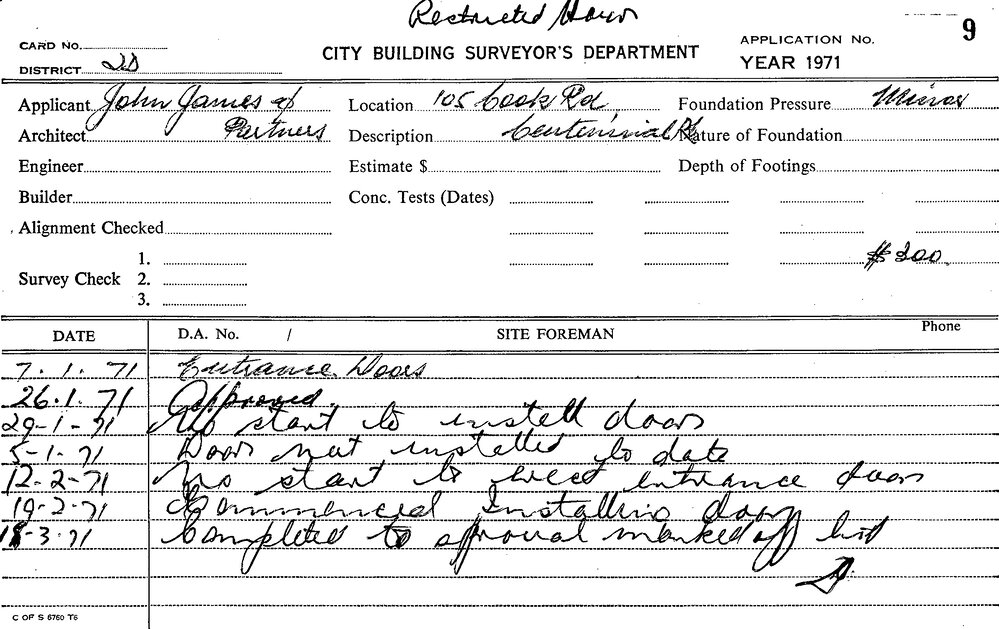 Restricted Hours
9
CARD No.
CITY BUILDING SURVEYOR'S DEPARTMENT
APPLICATION No.
DISTRICT
YEAR 1971
Applicant John James &
Location 105 Cook Rd,
Foundation Pressure Minor
Architect Partners
Description Centennial Pk
Nature of Foundation
Engineer
Estimate $
Depth of Footings
Builder
Conc. Tests (Dates)
Alignment Checked
1.
$200.
Survey Check 2.
3.
DATE D.A. No. / SITE FOREMAN Phone
7.1.71 Entrance Doors
26.1.71 Approved.
29-1-71 No start to install doors
5-1.71 Doors not installed to date
12-2-71 No start to erect entrance doors
19-2-71 Commenced Installing doors
18-3.71 Completed to approval marked off list
C OF S 6760 T6